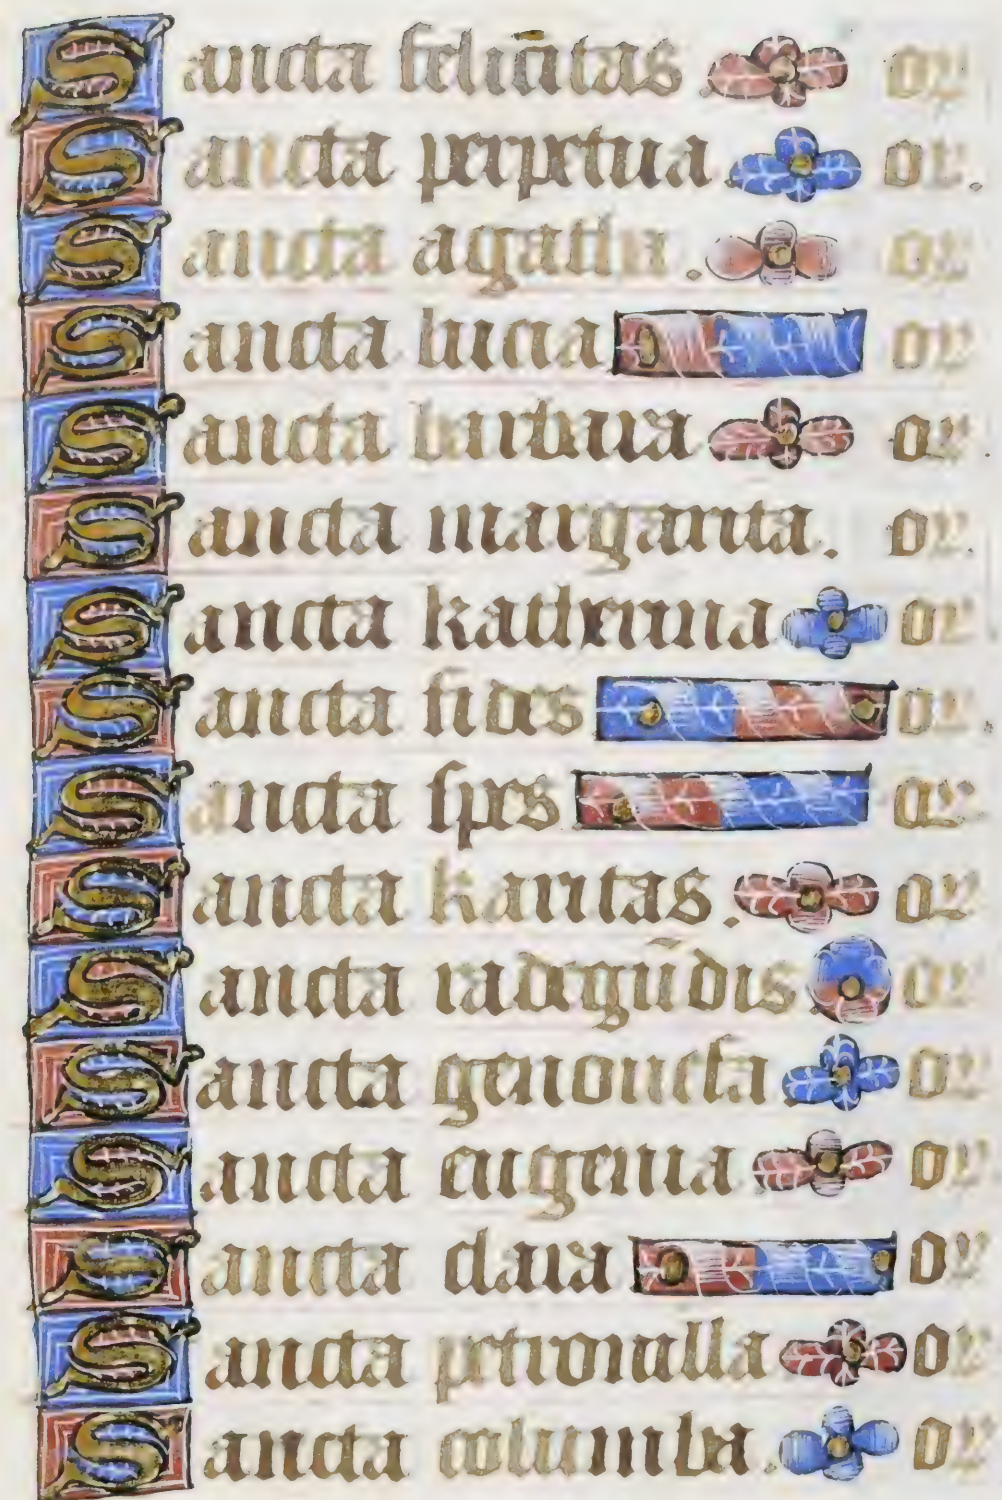 Sancta felicitas or
Sancta perpetua or.
Sancta agatha. or
Sancta lucia or
Sancta barbara or.
Sancta margarita. or.
Sancta katherina or
Sancta fides or.
Sancta spes or
Sancta karitas. or
Sancta radegūdis or
Sancta genouefa or
Sancta eugenia or
Sancta clara or
Sancta petronilla or
Sancta columba. or